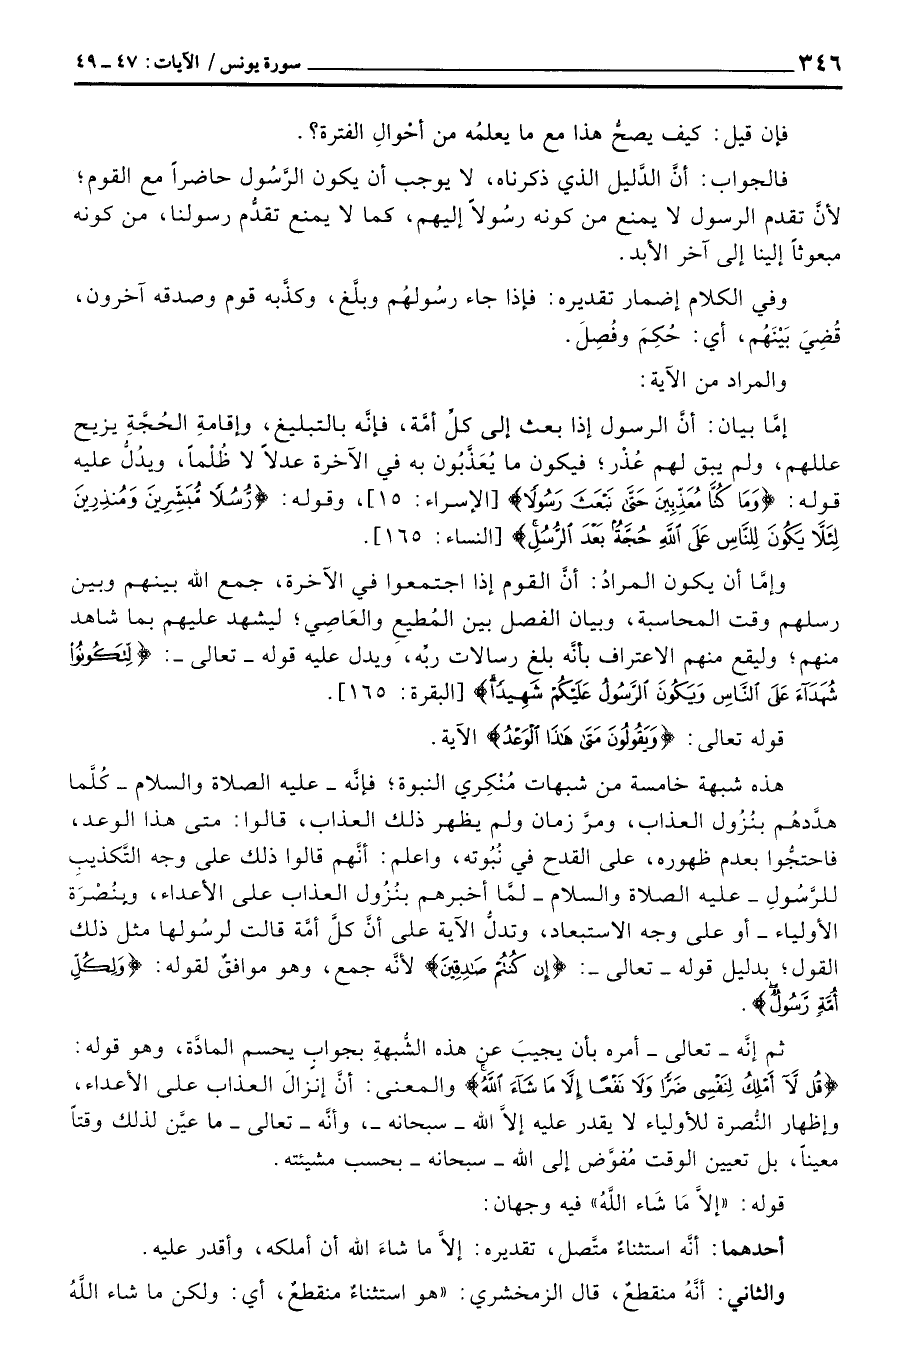 ٣٤٦ ـــــــــــــــــــــــــــــــــــــــــ سورة يونس / الآيات: ٤٧ ـ ٤٩
فإن قيل: كيف يصحُّ هذا مع ما يعلمُه من أحْوالِ الفترة؟.
فالجواب: أنَّ الدَّليل الذي ذكرناه، لا يوجب أن يكون الرَّسُول حاضراً مع القوم؛
لأنَّ تقدم الرسول لا يمنع من كونه رسُولاً إليهم، كما لا يمنع تقدُّم رسولنا، من كونه
مبعوثاً إلينا إلى آخر الأبد.
وفي الكلام إضمار تقديره: فإذا جاء رسُولهُم وبلَّغ، وكذَّبه قوم وصدقه آخرون،
قُضِيَ بَيْنَهُم، أي: حُكِمَ وفُصِلَ.
والمراد من الآية:
إمَّا بيان: أنَّ الرسول إذا بعث إلى كلِّ أمَّة، فإنَّه بالتبليغ، وإقامةِ الحُجَّةِ يزيح
عللهم، ولم يبق لهم عُذْر؛ فيكون ما يُعَذَّبُون به في الآخرة عدلاً لا ظُلْماً، ويدُلُّ عليه
قوله: ﴿وَمَا كُنَّا مُعَذِّبِينَ حَتَّىٰ نَبْعَثَ رَسُولًا﴾ [الإسراء: ١٥]، وقوله: ﴿رُّسُلًا مُّبَشِّرِينَ وَمُنذِرِينَ
لِئَلَّا يَكُونَ لِلنَّاسِ عَلَى ٱللَّهِ حُجَّةٌۢ بَعْدَ ٱلرُّسُلِۚ﴾ [النساء: ١٦٥].
وإمَّا أن يكون المرادُ: أنَّ القوم إذا اجتمعوا في الآخرة، جمع الله بينهم وبين
رسلهم وقت المحاسبة، وبيان الفصل بين المُطيعِ والعَاصِي؛ ليشهد عليهم بما شاهد
منهم؛ وليقع منهم الاعتراف بأنَّه بلغ رسالات ربِّه، ويدل عليه قوله ـ تعالى ـ: ﴿لِّتَكُونُوا۟
شُهَدَآءَ عَلَى ٱلنَّاسِ وَيَكُونَ ٱلرَّسُولُ عَلَيْكُمْ شَهِيدًاۗ﴾ [البقرة: ١٦٥].
قوله تعالى: ﴿وَيَقُولُونَ مَتَىٰ هَٰذَا ٱلْوَعْدُ﴾ الآية.
هذه شبهة خامسة من شبهات مُنْكِري النبوة؛ فإنَّه ـ عليه الصلاة والسلام ـ كُلَّما
هدَّدهُم بنُزُول العذاب، ومرَّ زمان ولم يظهر ذلك العذاب، قالوا: متى هذا الوعد،
فاحتجُّوا بعدم ظهوره، على القدح في نُبُوته، واعلم: أنَّهم قالوا ذلك على وجه التَّكذيبِ
للرَّسُولِ ـ عليه الصلاة والسلام ـ لمَّا أخبرهم بنُزُول العذاب على الأعداء، وبنُصْرَة
الأولياء ـ أو على وجه الاستبعاد، وتدلُّ الآية على أنَّ كلَّ أمَّة قالت لرسُولها مثل ذلك
القول؛ بدليل قوله ـ تعالى ـ: ﴿إِن كُنتُمْ صَٰدِقِينَ﴾ لأنَّه جمع، وهو موافقٌ لقوله: ﴿وَلِكُلِّ
أُمَّةٍ رَّسُولٌۖ﴾.
ثم إنَّه ـ تعالى ـ أمره بأن يجيبَ عن هذه الشُّبهةِ بجوابٍ يحسم المادَّة، وهو قوله:
﴿قُل لَّآ أَمْلِكُ لِنَفْسِى ضَرًّا وَلَا نَفْعًا إِلَّا مَا شَآءَ ٱللَّهُۗ﴾ والمعنى: أنَّ إنزالَ العذاب على الأعداء،
وإظهار النُّصرة للأولياء لا يقدر عليه إلاَّ الله ـ سبحانه ـ، وأنَّه ـ تعالى ـ ما عيَّن لذلك وقتاً
معيناً، بل تعيين الوقت مُفوَّض إلى الله ـ سبحانه ـ بحسب مشيئته.
قوله: «إلاَّ مَا شَاء اللَّهُ» فيه وجهان:
أحدهما: أنَّه استثناءٌ متَّصل، تقديره: إلاَّ ما شاءَ الله أن أملكه، وأقدر عليه.
والثاني: أنَّهُ منقطعٌ، قال الزمخشري: «هو استثناءٌ منقطعٌ، أي: ولكن ما شاء اللَّهُ